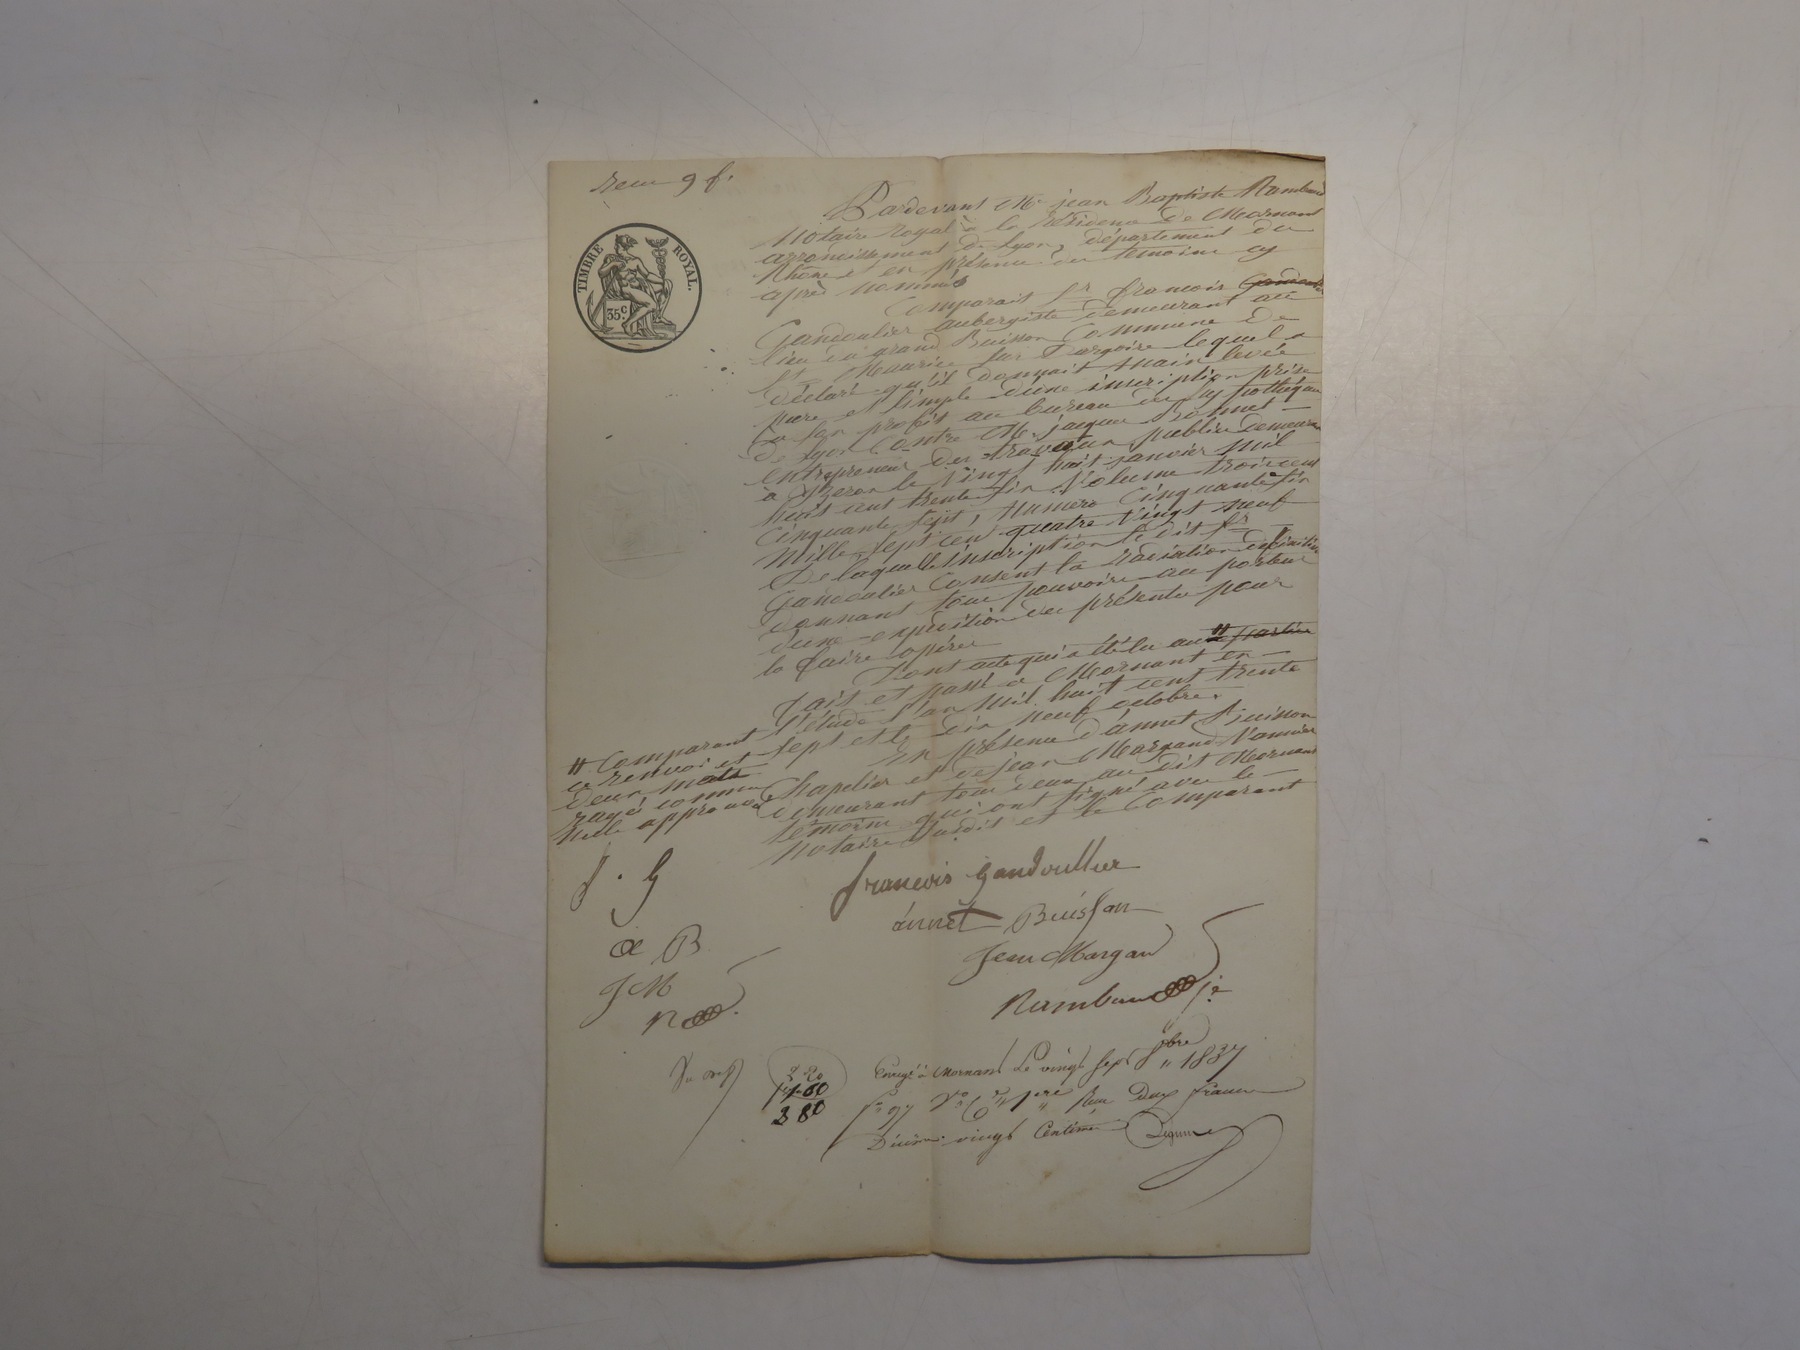 reçu 9 f.
TIMBRE ROYAL.
35c
Pardevant Me jean Baptiste Rambaud
Notaire Royal à la Résidence de Mornant
arrondissement de Lyon, département du
Rhône et en présence des témoins cy
après nommés
Comparait sr françois
Gandoulier aubergiste demeurant au
lieu du grand Buisson Commune de
St Maurice sur Dargoire lequel a
déclaré qu'il donnait main levée
pure et simple d'une inscription prise
à son profit au bureau des hypothèques
de Lyon Contre Mr jacques Bonnet
entrepreneur des travaux publics demeurant
à le Vingt huit janvier mil
huit cent trente six Volume trois cent
Cinquante sept, numéro Cinquante six
mille sept cent quatre Vingt neuf
De laquelle inscription le dit sr
Gandoulier Consent la radiation définitive
donnant tous pouvoirs au porteur
d'une expédition des présentes pour
la faire opérer
Dont acte qui a été lu au # parties
fait et passé à Mornant en
l'étude l'an mil huit cent trente
sept et le dix neuf octobre.
En présence d'annet Buisson
Chapelier et de jean Margand Vannier
demeurant tous deux au dit Mornant
témoins qui ont signé avec le
Notaire susdit et le Comparant
# Comparant
ce renvoi et
deux mots
rayés comme
nuls approuvés
f. G
a B
J M
R
françois gandoullier
annet Buisson
Jean Margan
Rambaud
Enregé à Mornant Le vingt sept 8bre 1837
fo 97 Vo Cer 1ere Reçu Deux francs
Décime vingt Centimes
2 20
1 60
3 80